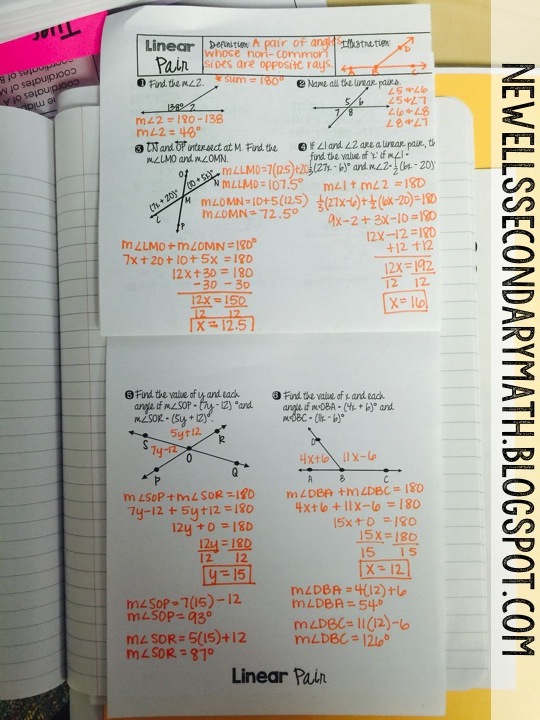 Linear Pair
Definition: A pair of angles
whose non-common
sides are opposite rays.
* sum = 180°
Illustration:
A B C D
① Find the m∠2.
138° 2
m∠2 = 180 - 138
m∠2 = 48°
② Name all the linear pairs.
5 6
7 8
∠5 & ∠6
∠5 & ∠7
∠6 & ∠8
∠8 & ∠7
③ LN and OP intersect at M. Find the
m∠LMO and m∠OMN.
O
(7x + 20)° (10 + 5x)°
N
M
L
P
m∠LMO = 7(12.5)+20
m∠LMO = 107.5°
m∠OMN = 10+5(12.5)
m∠OMN = 72.5°
m∠LMO + m∠OMN = 180°
7x + 20 + 10 + 5x = 180
12x + 30 = 180
- 30 - 30
12x = 150
12 12
x = 12.5
④ If ∠1 and ∠2 are a linear pair,
find the value of 'x' if m∠1 =
⅓(27x - 6)° and m∠2 = ½(6x - 20)°
m∠1 + m∠2 = 180
⅓(27x-6) + ½(6x-20) = 180
9x - 2 + 3x - 10 = 180
12x - 12 = 180
+12 +12
12x = 192
12 12
x = 16
⑤ Find the value of y and each
angle if m∠SOP = (7y - 12)° and
m∠SOR = (5y + 12)°.
5y+12
S R
7y-12
O
P Q
m∠SOP + m∠SOR = 180
7y - 12 + 5y + 12 = 180
12y + 0 = 180
12y = 180
12 12
y = 15
m∠SOP = 7(15) - 12
m∠SOP = 93°
m∠SOR = 5(15) + 12
m∠SOR = 87°
⑥ Find the value of x and each
angle if m∠DBA = (4x + 6)° and
m∠DBC = (11x - 6)°
D
4x+6 11x-6
A B C
m∠DBA + m∠DBC = 180
4x + 6 + 11x - 6 = 180
15x + 0 = 180
15x = 180
15 15
x = 12
m∠DBA = 4(12) + 6
m∠DBA = 54°
m∠DBC = 11(12) - 6
m∠DBC = 126°
Linear Pair
NEWELLSSECONDARYMATH.BLOGSPOT.COM